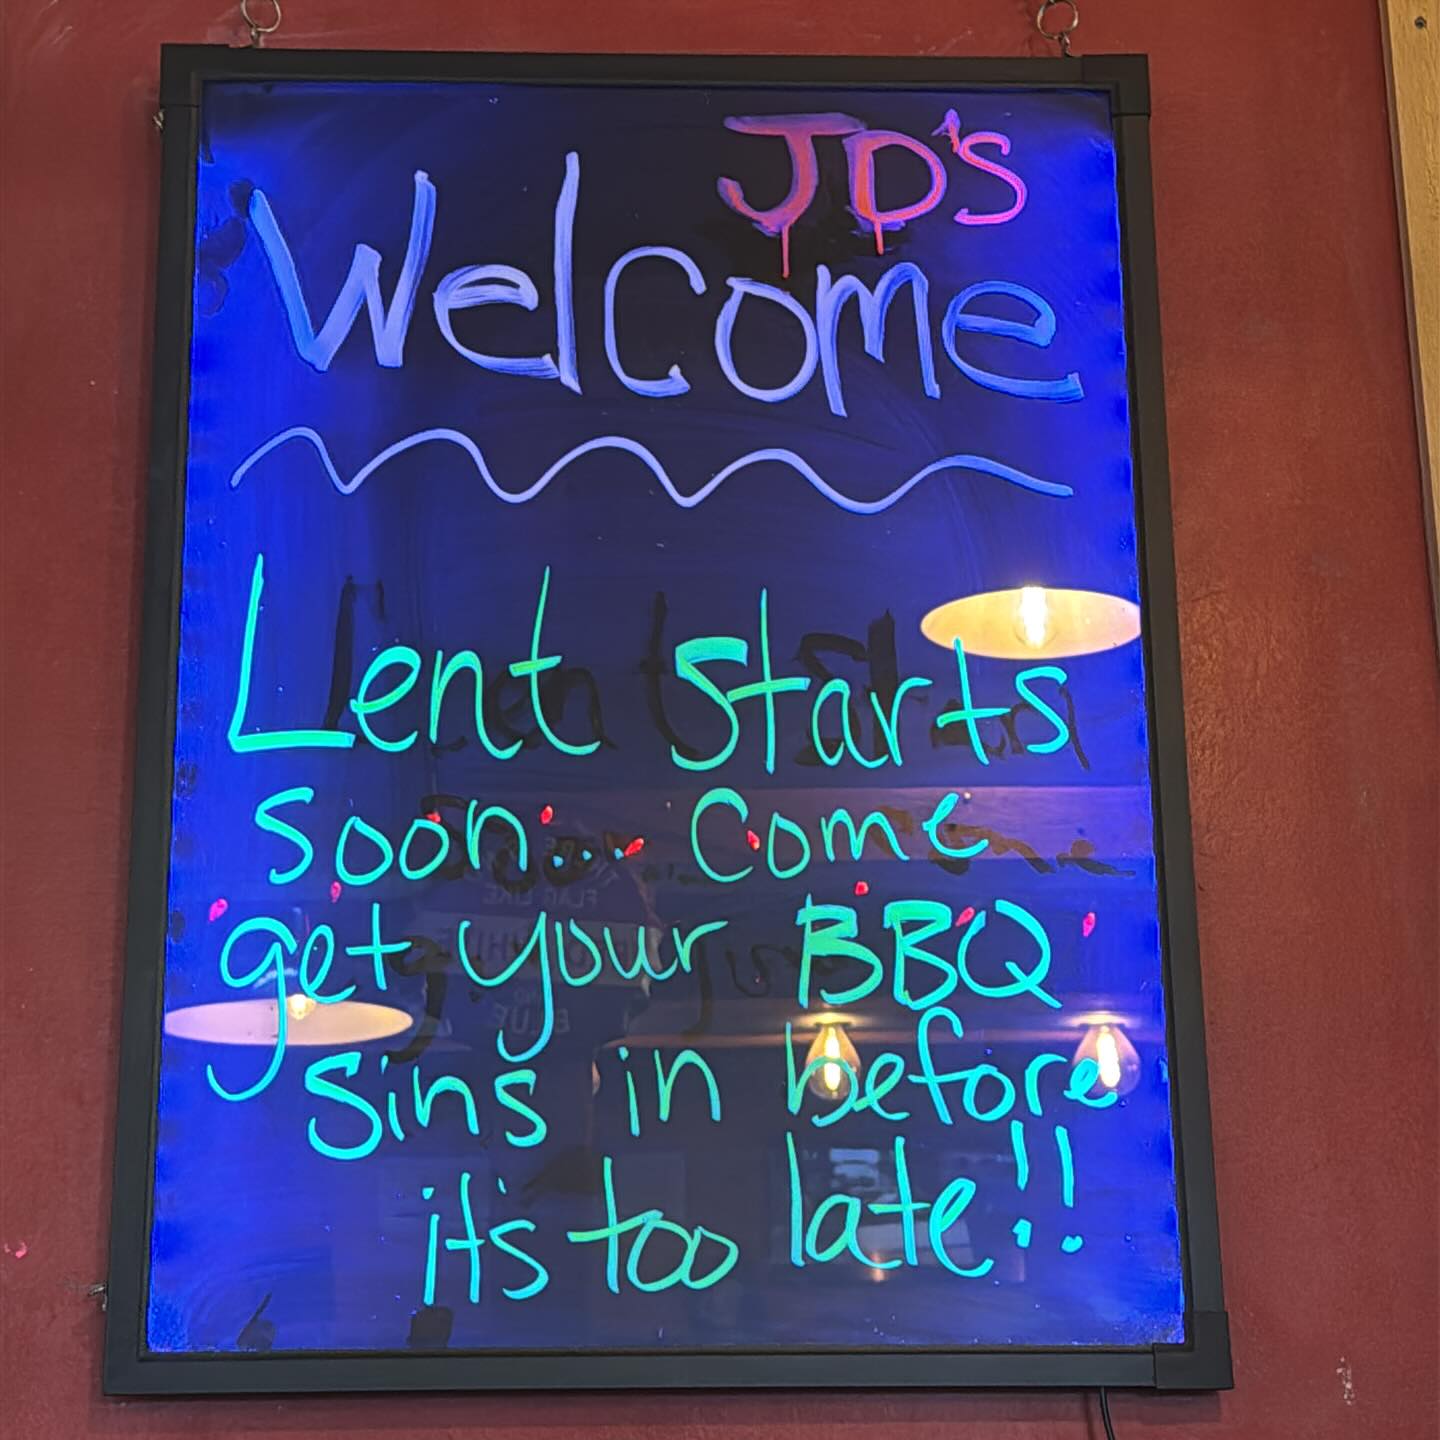 JD's
Welcome
Lent Starts
soon... Come
get your BBQ
Sins in before
it's too late!!